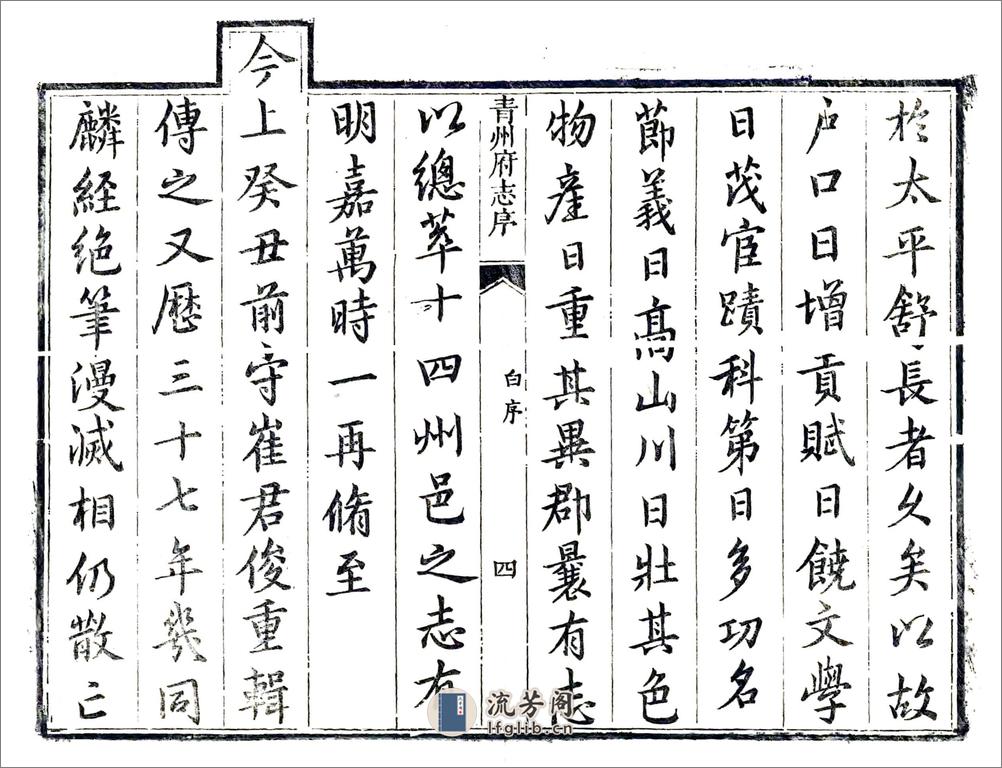 於太平舒長者久矣以故
戶口日增貢賦日饒文學
日茂宦蹟科第日多功名
節義日高山川日壯其色
物產日重其異郡曩有志
青州府志序
白序
四
以總萃十四州邑之志有
明嘉萬時一再脩至
今上癸丑前守崔君俊重輯
傳之又歷三十七年幾同
麟經絕筆漫滅相仍散亡
流芳阁
lfglib.cn